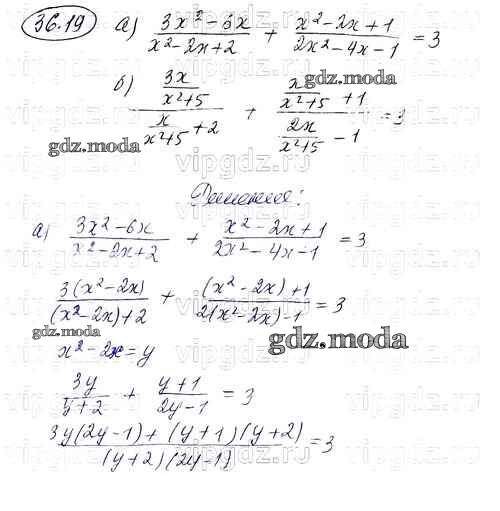 36.19 а) (3x² - 6x)/(x² - 2x + 2) + (x² - 2x + 1)/(2x² - 4x - 1) = 3
б) (3x/(x²+5))/(x/(x²+5) + 2) + (x/(x²+5) + 1)/(2x/(x²+5) - 1) = 3
gdz.moda
gdz.moda
Решение:
а) (3x² - 6x)/(x² - 2x + 2) + (x² - 2x + 1)/(2x² - 4x - 1) = 3
(3(x² - 2x))/((x² - 2x) + 2) + ((x² - 2x) + 1)/(2(x² - 2x) - 1) = 3
gdz.moda
gdz.moda
x² - 2x = y
3y/(y+2) + (y+1)/(2y-1) = 3
(3y(2y-1) + (y+1)(y+2))/((y+2)(2y-1)) = 3
vipgdz.ru